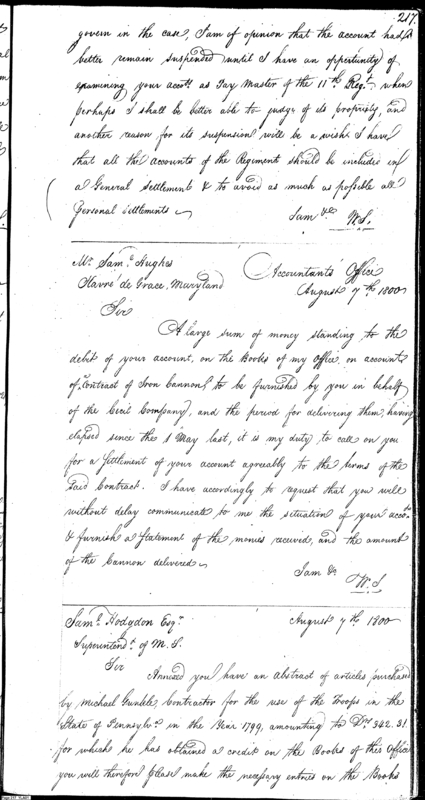 217.
govern in the case, I am of opinion that the account had
better remain suspended until I have an opportunity of
examining your accots. as Pay Master of the 11th. Regt. when
perhaps I shall be better able to judge of its propriety, and
another reason for its suspension will be a wish I have
that all the accounts of the Regiment should be included in
a General Settlement & to avoid as much as possible all
Personal Settlements
I am &c W.S.
Mr. Saml. Hughes
Havre de Grace, Maryland
Accountants Office
August 7th. 1800
Sir
A large sum of money standing to the
debit of your account, on the Books of my Office, on account
of Contract of Iron Cannon to be furnished by you in behalf
of the Cecil Company, and the period for delivering them, having
elapsed since the 1 May last, it is my duty to call on you
for a Settlement of your account agreeably to the terms of the
Said Contract. I have accordingly to request that you will
without delay communicate to me the situation of your accot.
& furnish a Statement of the monies received, and the amount
of the Cannon delivered
I am &c
W.S
Saml. Hodgdon Esqr.
August 7th. 1800
Superintendt. of M. S.
Sir
Annexed you have an abstract of articles purchased
by Michael Gunkle, Contractor for the use of the Troops in the
State of Pennsylva. in the Year 1799, amounting to Drs 342.31.
for which he has obtained a credit on the Books of this Office
you will therefore please make the necessary entries on the Books